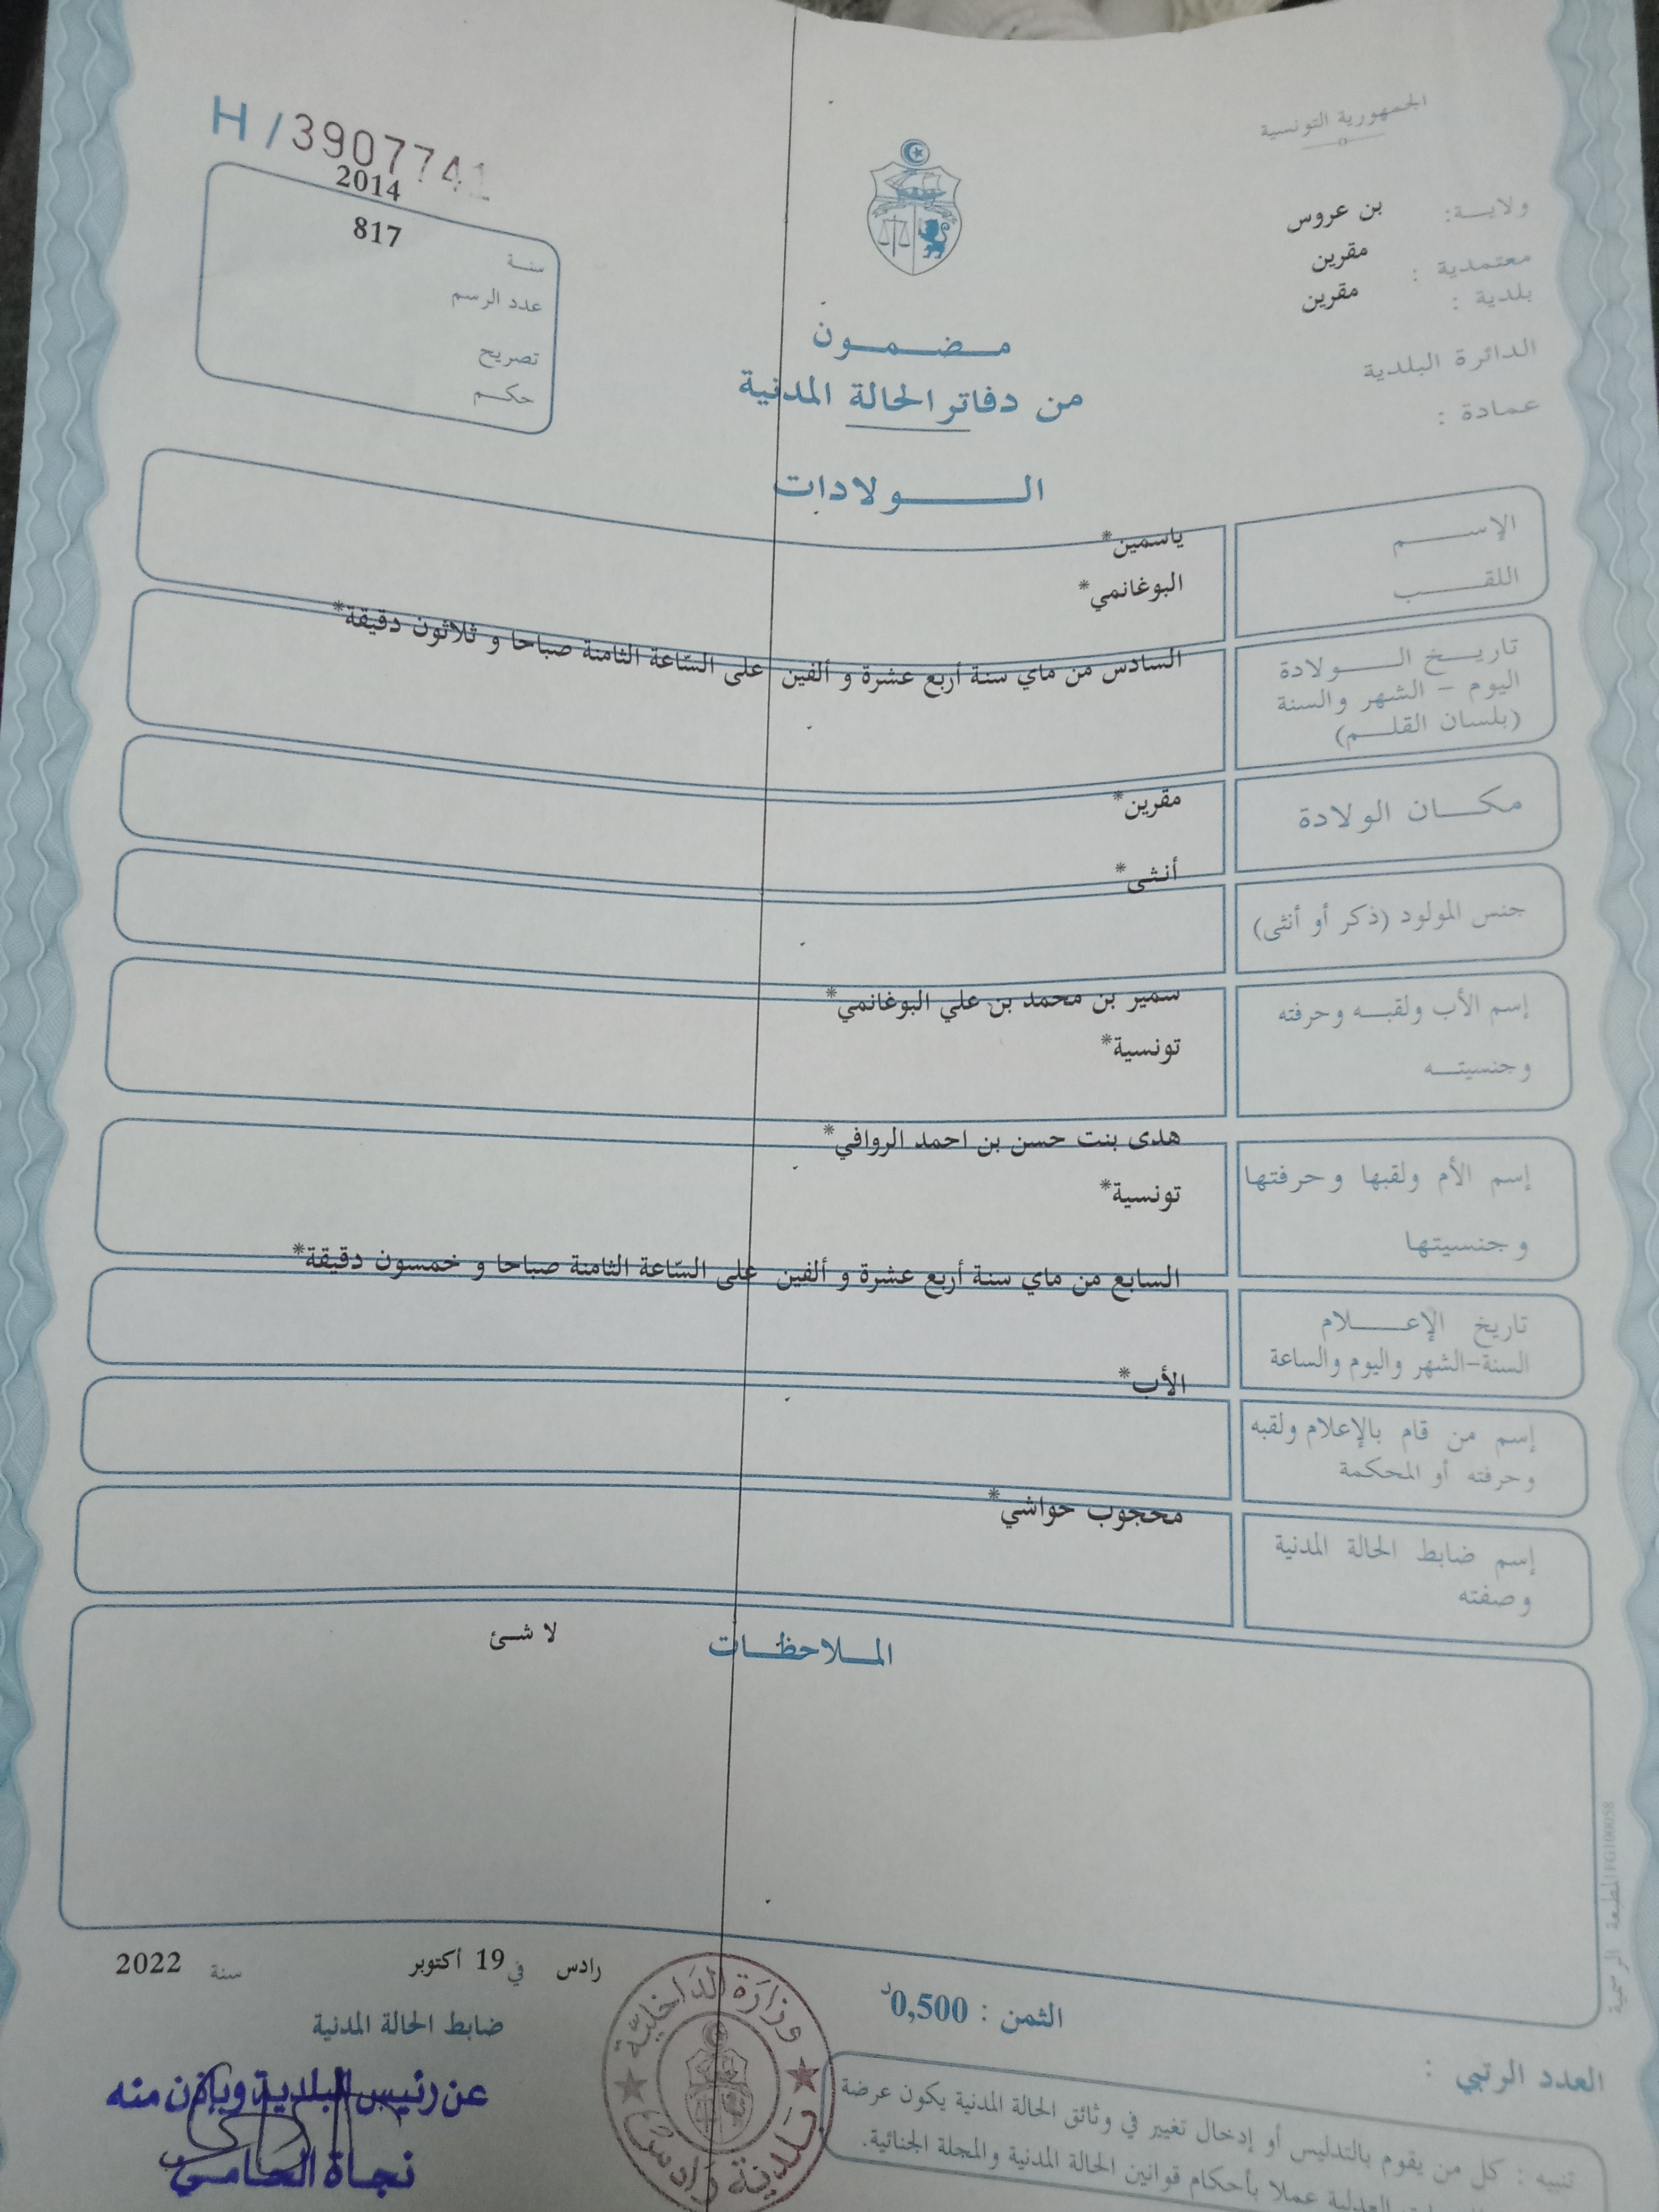 الجمهورية التونسية
H / 3907741
ولايـــة: بن عروس
معتمدية : مقرين
بلدية : مقرين
الدائرة البلدية
عمادة :
2014
817
سنـة
عدد الرسم
تصريح
حكـــم
مـــضـــمـــون
من دفاتر الحالة المدنية
الـــــولادات
الإســــم ياسمين*
اللقــــب البوغانمي*
تاريـــخ الـــــولادة السادس من ماي سنة أربع عشرة و ألفين على السّاعة الثامنة صباحا و ثلاثون دقيقة*
اليوم – الشهر والسنة
(بلسان القلـــم)
مكـــان الولادة مقرين*
جنس المولود (ذكر أو أنثى) أنثى*
إسم الأب ولقبـــه وحرفته سمير بن محمد بن علي البوغانمي*
وجنسيتـــه تونسية*
إسم الأم ولقبها وحرفتها هدى بنت حسن بن احمد الروافي*
وجنسيتها تونسية*
تاريخ الإعـــــلام السابع من ماي سنة أربع عشرة و ألفين على السّاعة الثامنة صباحا و خمسون دقيقة*
السنة-الشهر واليوم والساعة
إسم من قام بالإعلام ولقبه الأب*
وحرفته أو المحكمة
إسم ضابط الحالة المدنية محجوب حواشي*
وصفته
المـــلاحظـــات لا شئ
رادس في 19 أكتوبر سنة 2022
ضابط الحالة المدنية
عن رئيس البلدية وبإذن منه
نجاة الحامي
وزارة الداخلية
بلدية رادس
الثمن : 0,500د
العدد الرتبي :
تنبيه : كل من يقوم بالتدليس أو إدخال تغيير في وثائق الحالة المدنية يكون عرضة
العدلية عملا بأحكام قوانين الحالة المدنية والمجلة الجنائية.
المطبعة الرسمية